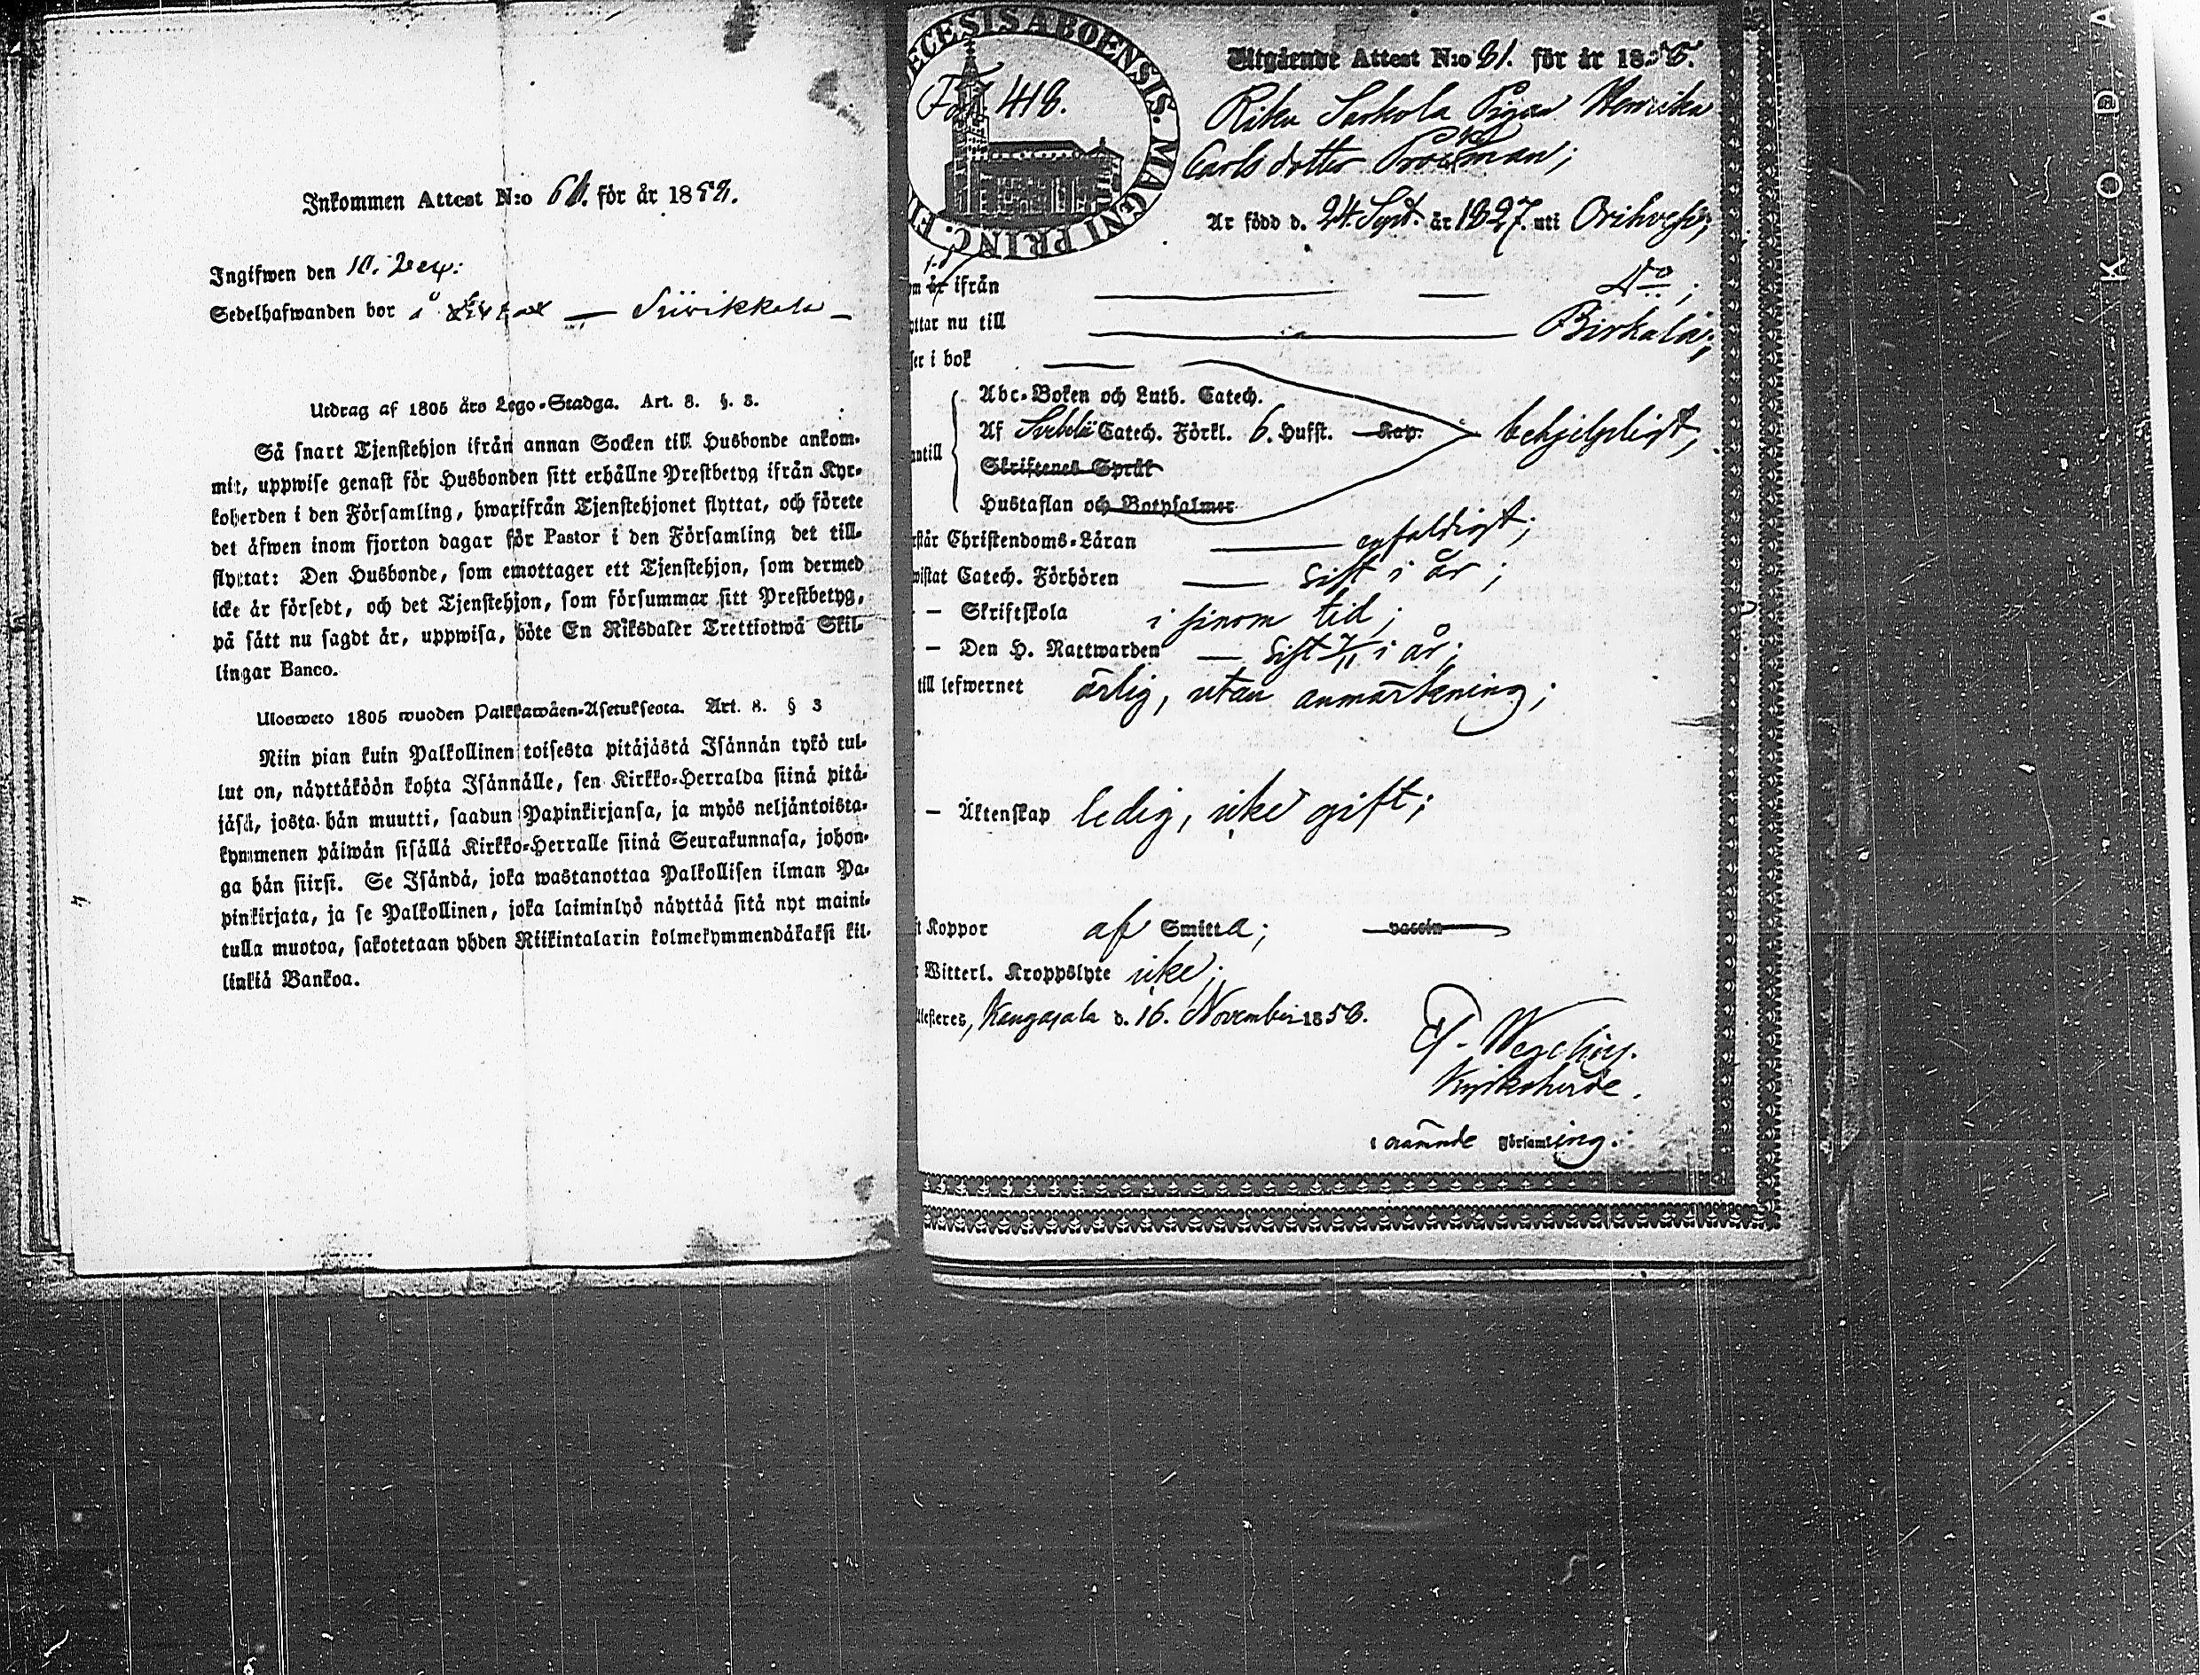 Inkommen Attest N:o för år 18
Ingifwen den 10.
Sedelhafwanden bor å — Siivikkala —
Utdrag af 1805 års Lego-Stadga. Art. 8. §. 3.
Så snart Tjenstehjon ifrån annan Socken till Husbonde ankom-
mit, uppwise genast för Husbonden sitt erhållne Prestbetyg ifrån Kyr-
koherden i den Församling, hwarifrån Tjenstehjonet flyttat, och förete
det äfwen inom fjorton dagar för Pastor i den Församling det till-
flyttat: Den Husbonde, som emottager ett Tjenstehjon, som dermed
icke är försedt, och det Tjenstehjon, som försummar sitt Prestbetyg,
på sätt nu sagdt är, uppwisa, böte En Riksdaler Trettiotwå Skil-
lingar Banco.
Ulosweto 1805 wuoden Palkkawäen-Asetuksesta. Art. 8. § 3
Niin pian kuin Palkollinen toisesta pitäjästä Isännän tykö tul-
lut on, näyttäköön kohta Isännälle, sen Kirkko-Herralda siinä pitä-
jäsä, josta hän muutti, saadun Papinkirjansa, ja myös neljäntoista-
kymmenen päiwän sisällä Kirkko-Herralle siinä Seurakunnasa, johon-
ga hän siirsi. Se Isändä, joka wastanottaa Palkollisen ilman Pa-
pinkirjata, ja se Palkollinen, joka laiminlyö näyttää sitä nyt maini-
tulla muotoa, sakotetaan yhden Riikintalarin kolmekymmendäkaksi kil-
linkiä Bankoa.
ECESIS ABOENSIS. MAGNI PRINC. FI
Fol. 418.
Utgående Attest N:o 31. för år 18
Riku Sarkola Pigan Henrika
Carlsdotter
Är född d. 24. Sept. år 1827. uti Orihvesi;
ifrån — — D:o;
ttar nu till — Birkala;
ser i bok —
Abc-Boken och Luth. Catech.
Af Svebelii Catech. Förkl. 6. Hufst. Kap. behjelpligt;
antill
Skriftenes Språk
Hustaflan och Botpsalmer
rstår Christendoms-Läran — enfaldigt;
wistat Catech. Förhören — sist i år;
— Skriftskola i sinom tid;
— Den H. Nattwarden — sist 7/11 i år;
till lefwernet ärlig, utan anmärkning;
— Äktenskap ledig, icke gift;
t Koppor af Smitta; vaccin
Witterl. Kroppslyte icke;
ttesteres, Kangasala d. 16. November 1858.
Kyrkoherde.
i nämnde Församling.
KODA